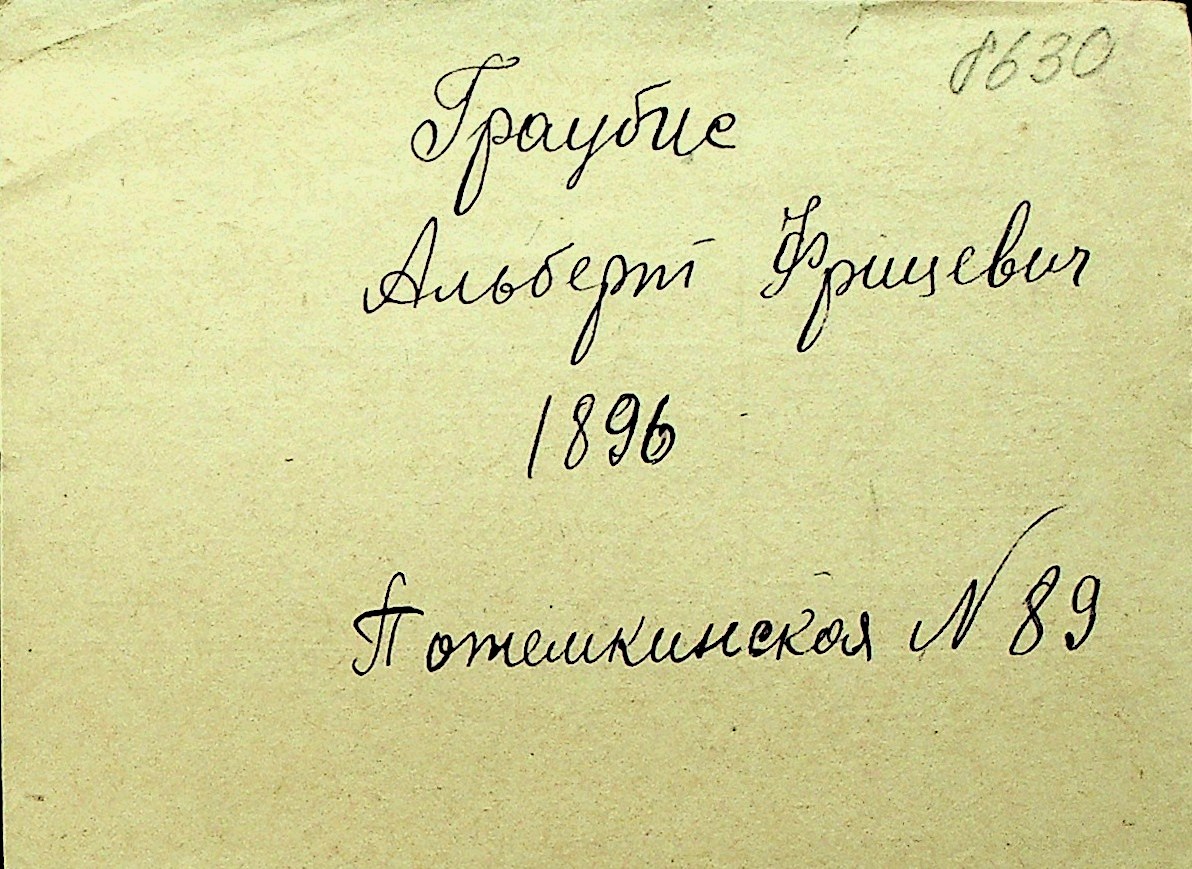 8630
Граубис
Альберт Фрицевич
1896
Потемкинская N 89